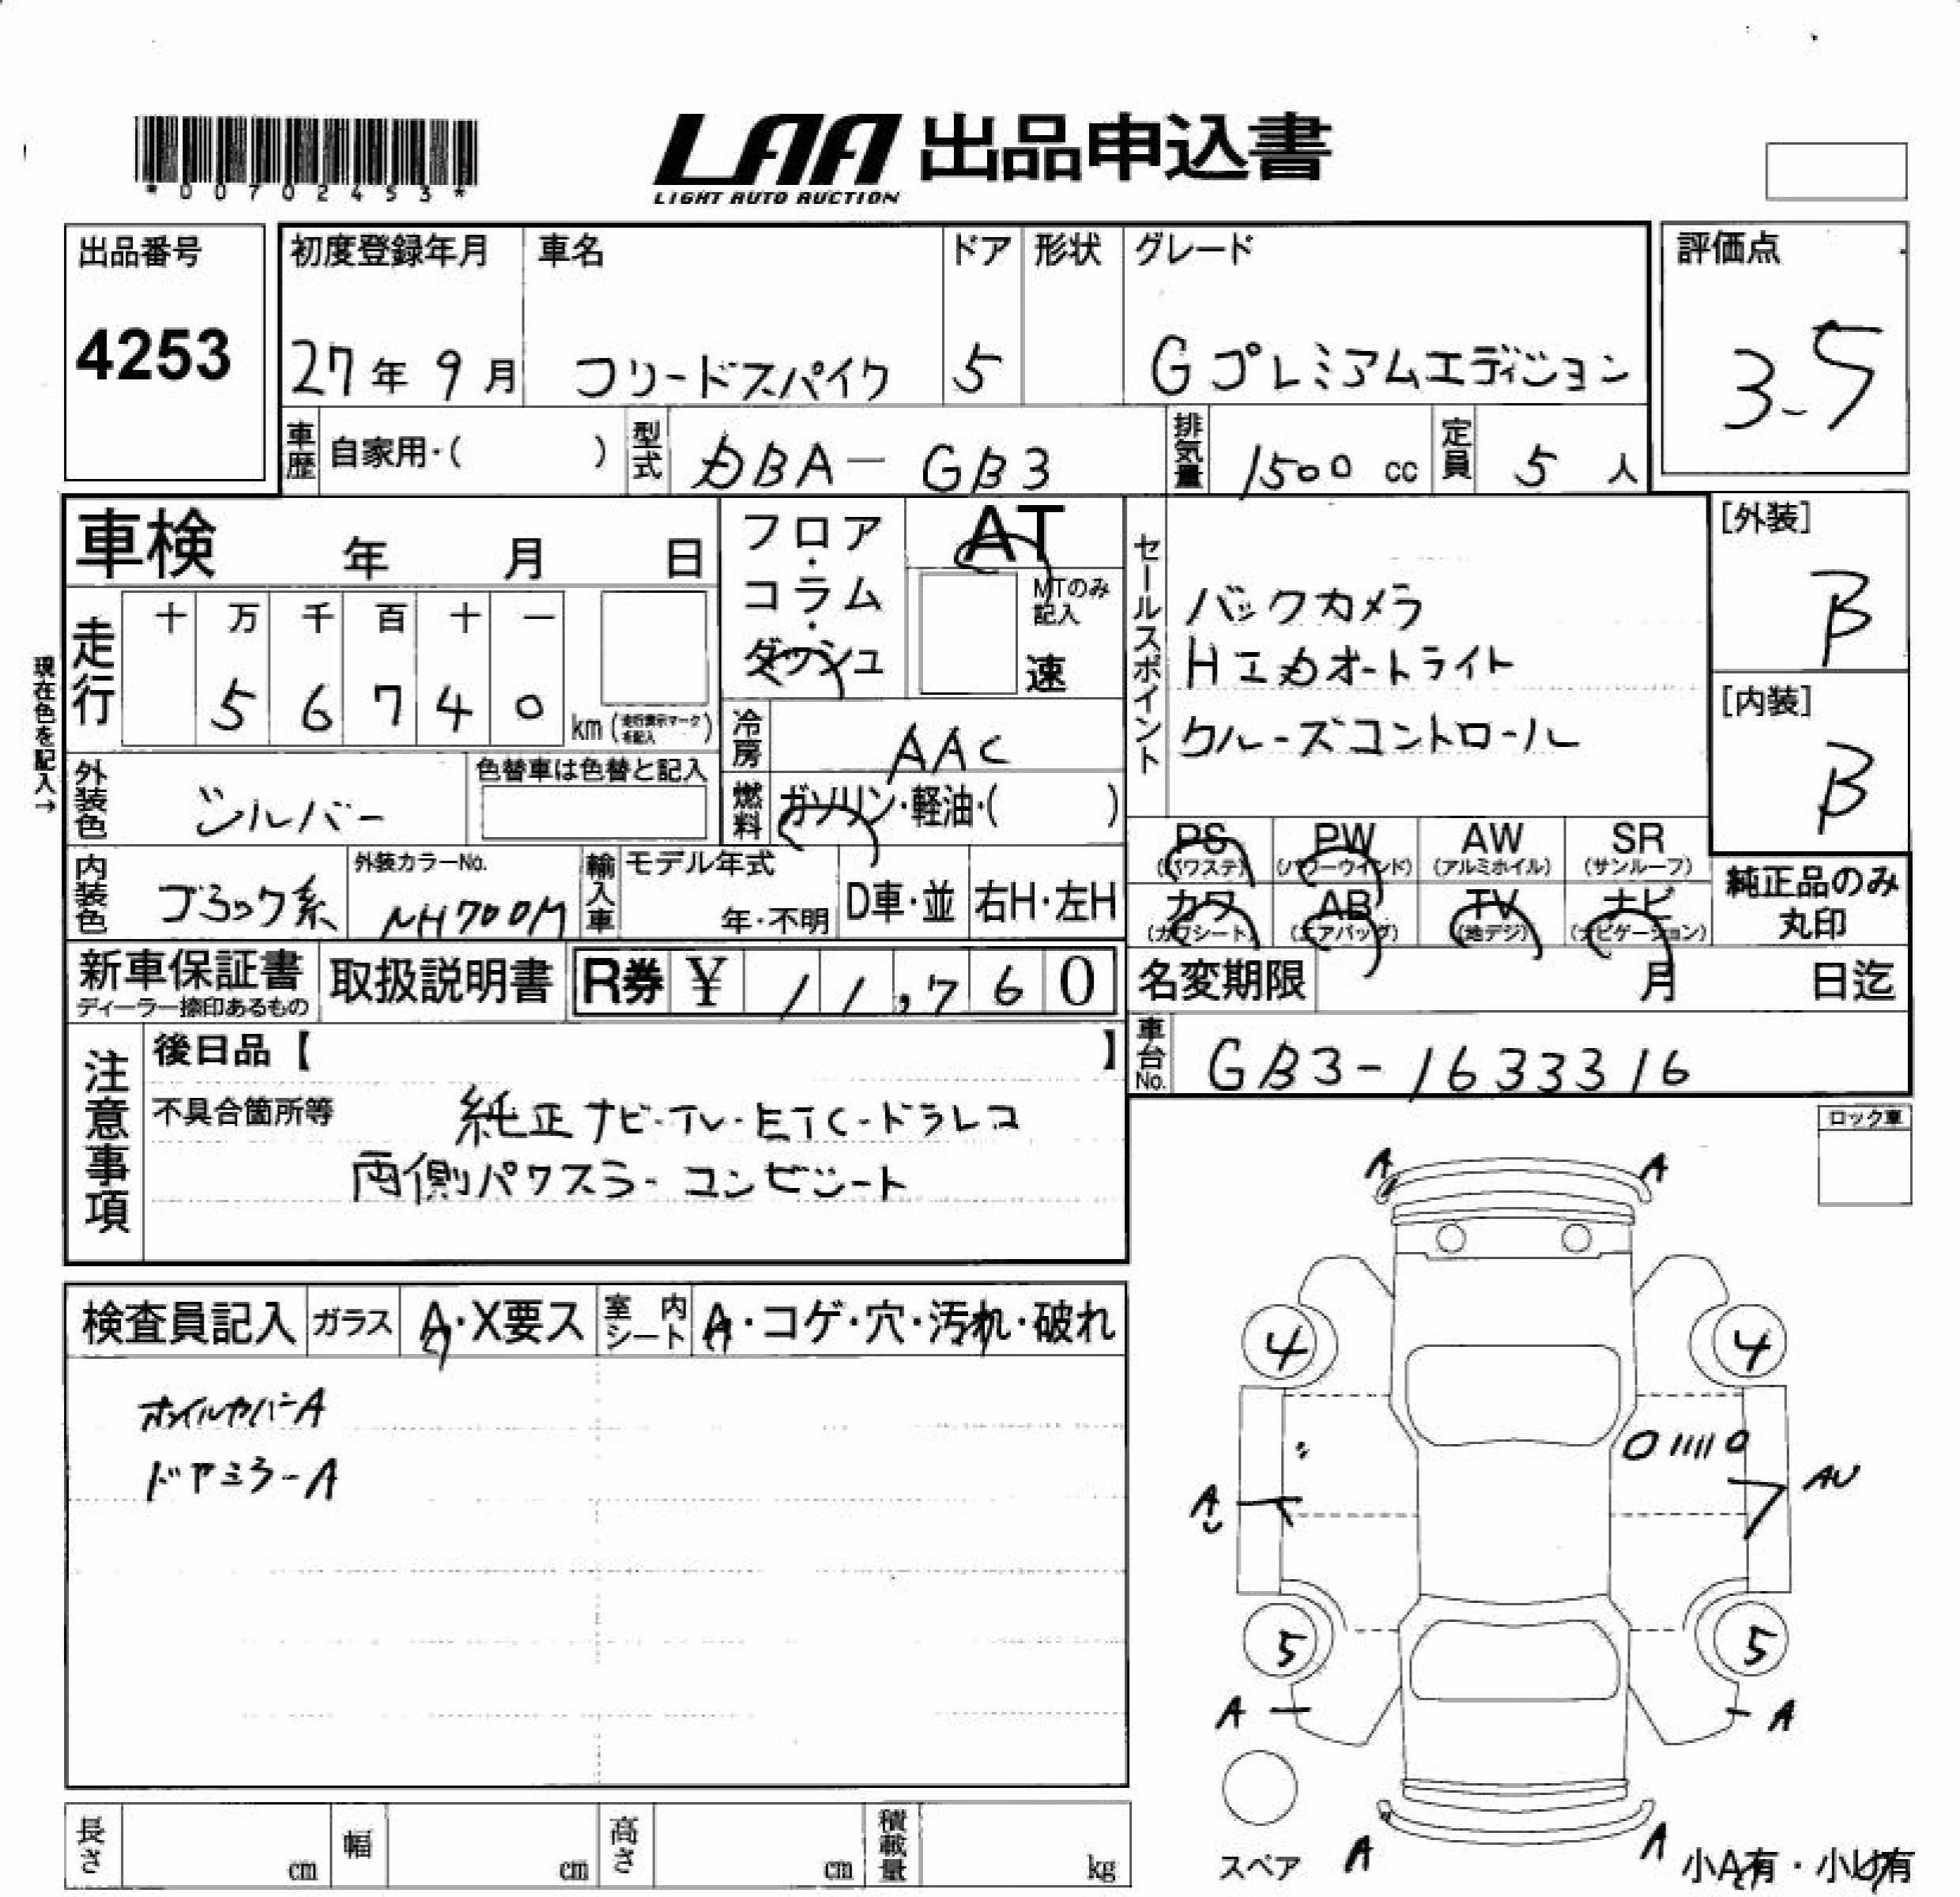 *00702453*
LAA 出品申込書
LIGHT AUTO AUCTION
出品番号 4253
初度登録年月 27年 9月
車名 フリードスパイク
ドア 5
形状
グレード Gプレミアムエディション
評価点 3.5
車歴 自家用・( )
型式 DBA-GB3
排気量 1500 cc
定員 5 人
車検 年 月 日
フロア・コラム・ダッシュ
AT
MTのみ記入
速
セールスポイント
バックカメラ
HIDオートライト
クルーズコントロール
[外装] B
[内装] B
現在色を記入→
走行 十 万 千 百 十 一
5 6 7 4 0 km (走行表示マークを記入)
冷房 AAC
外装色 シルバー
色替車は色替と記入
燃料 ガソリン・軽油・( )
PS (パワステ) PW (パワーウインド) AW (アルミホイル) SR (サンルーフ)
カワ (カワシート) AB (エアバッグ) TV (地デジ) ナビ (ナビゲーション)
純正品のみ丸印
内装色 ブラック系
外装カラーNo. NH700M
輸入車 モデル年式 年・不明
D車・並 右H・左H
新車保証書 ディーラー捺印あるもの
取扱説明書
R券 ¥ 11,760
名変期限 月 日迄
車台No. GB3-1633316
注意事項
後日品【 】
不具合箇所等 純正ナビ-TV-ETC-ドラレコ
両側パワスラ-コンビシート
ロック車
検査員記入 ガラス A・X要ス 室内シート A・コゲ・穴・汚れ・破れ
ホイルカバーA
ドアミラーA
A A
4 4
AU AU
5 5
A A
スペア A A 小A有・小U有
長さ cm 幅 cm 高さ cm 積載量 kg